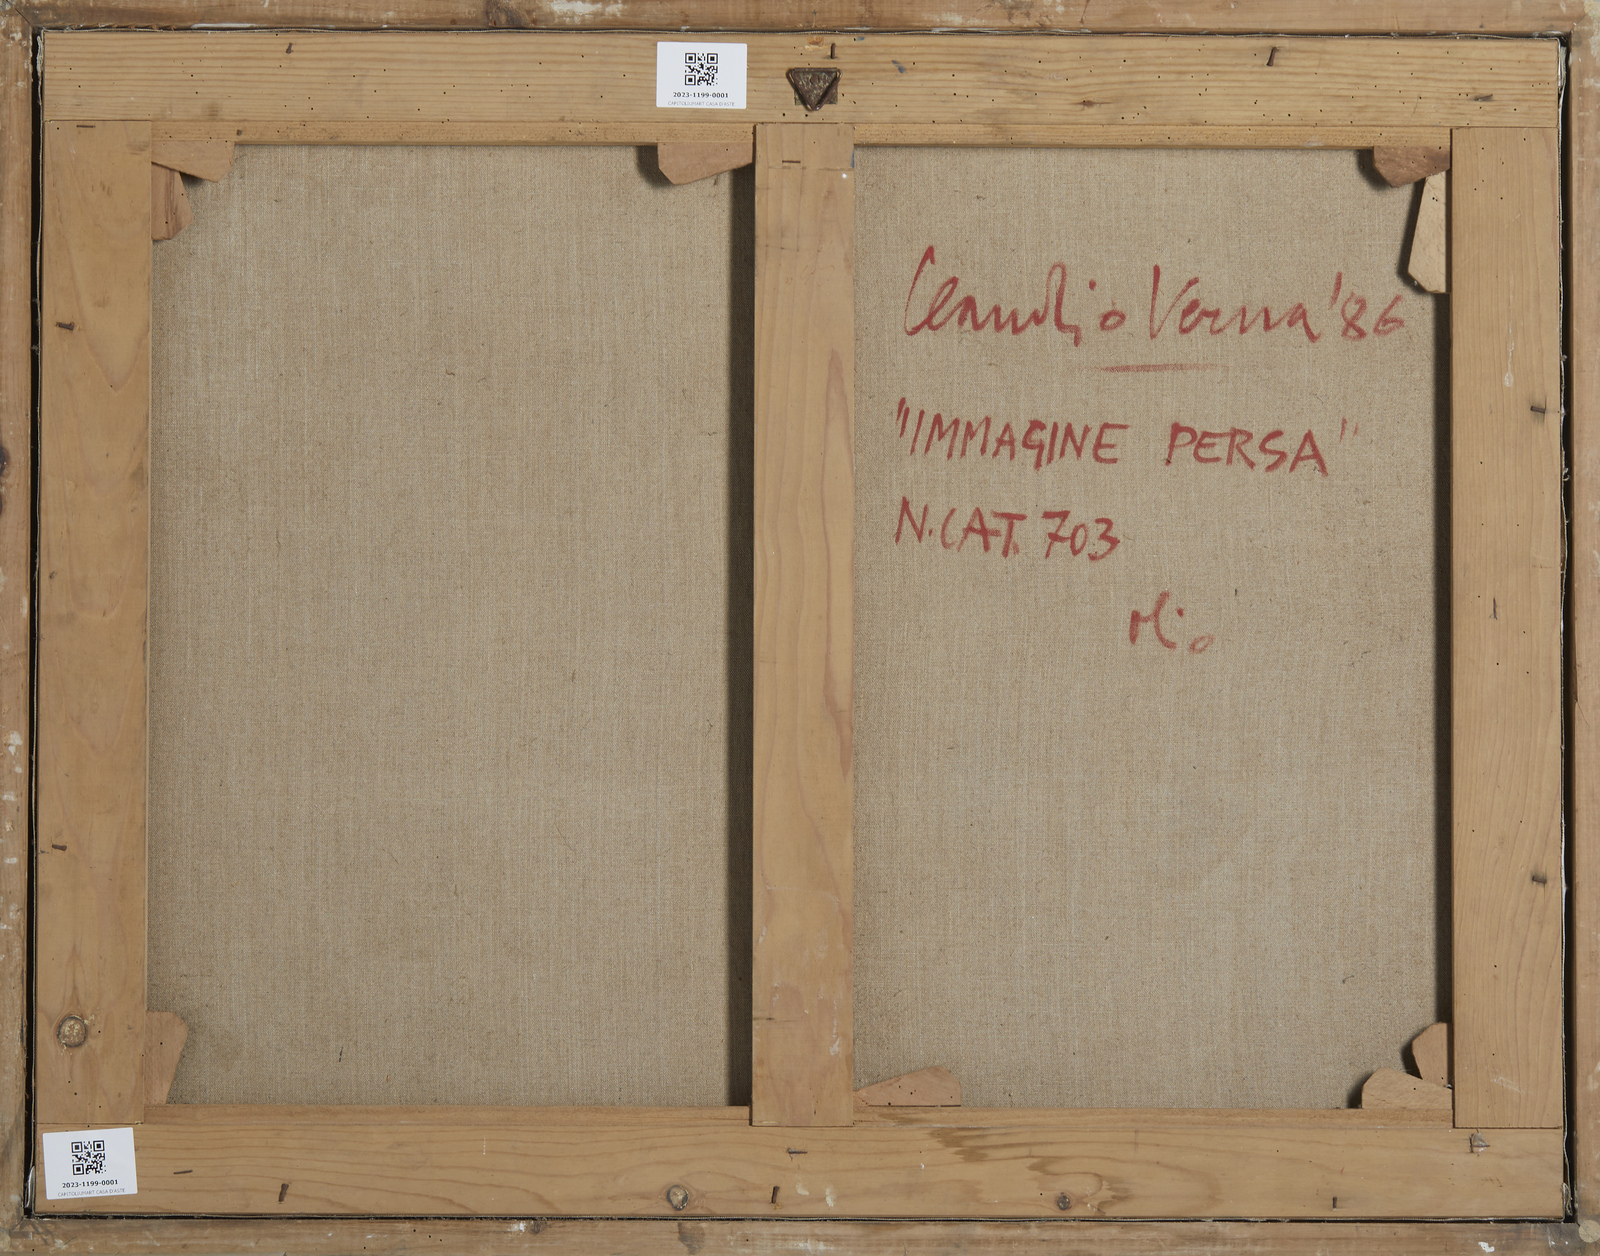 2023-1199-0001
CAPITOLIUMART CASA D'ASTE
Claudio Verna '86
"IMMAGINE PERSA"
N. CAT. 703
olio
2023-1199-0001
CAPITOLIUMART CASA D'ASTE